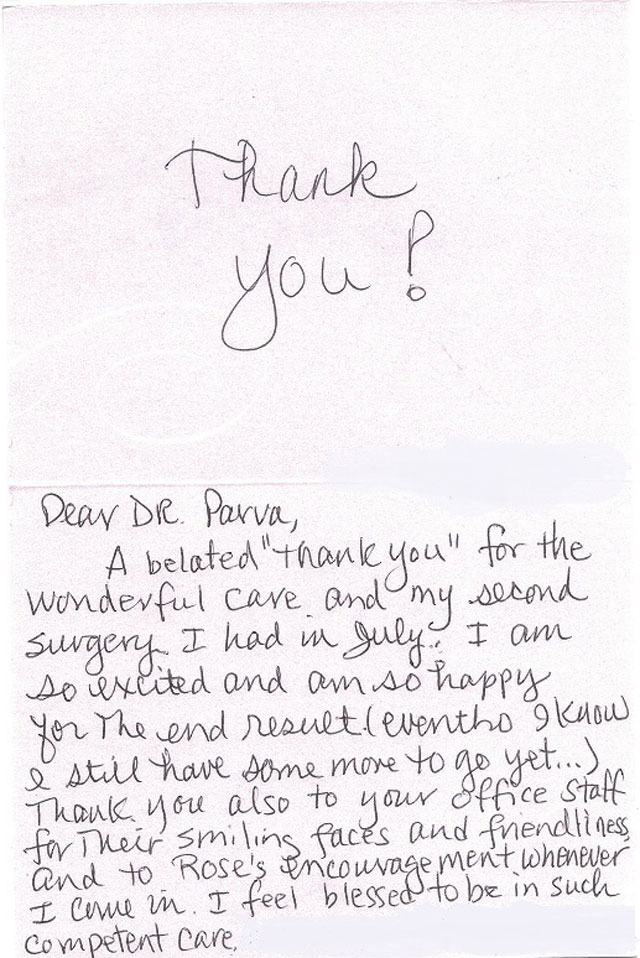 Thank
you!
Dear DR. Parva,
A belated "thank you" for the
wonderful care and my second
surgery I had in July. I am
so excited and am so happy
for the end result. (eventho I know
I still have some more to go yet...)
Thank you also to your office staff
for their smiling faces and friendliness
and to Rose's encouragement whenever
I come in. I feel blessed to be in such
competent care.